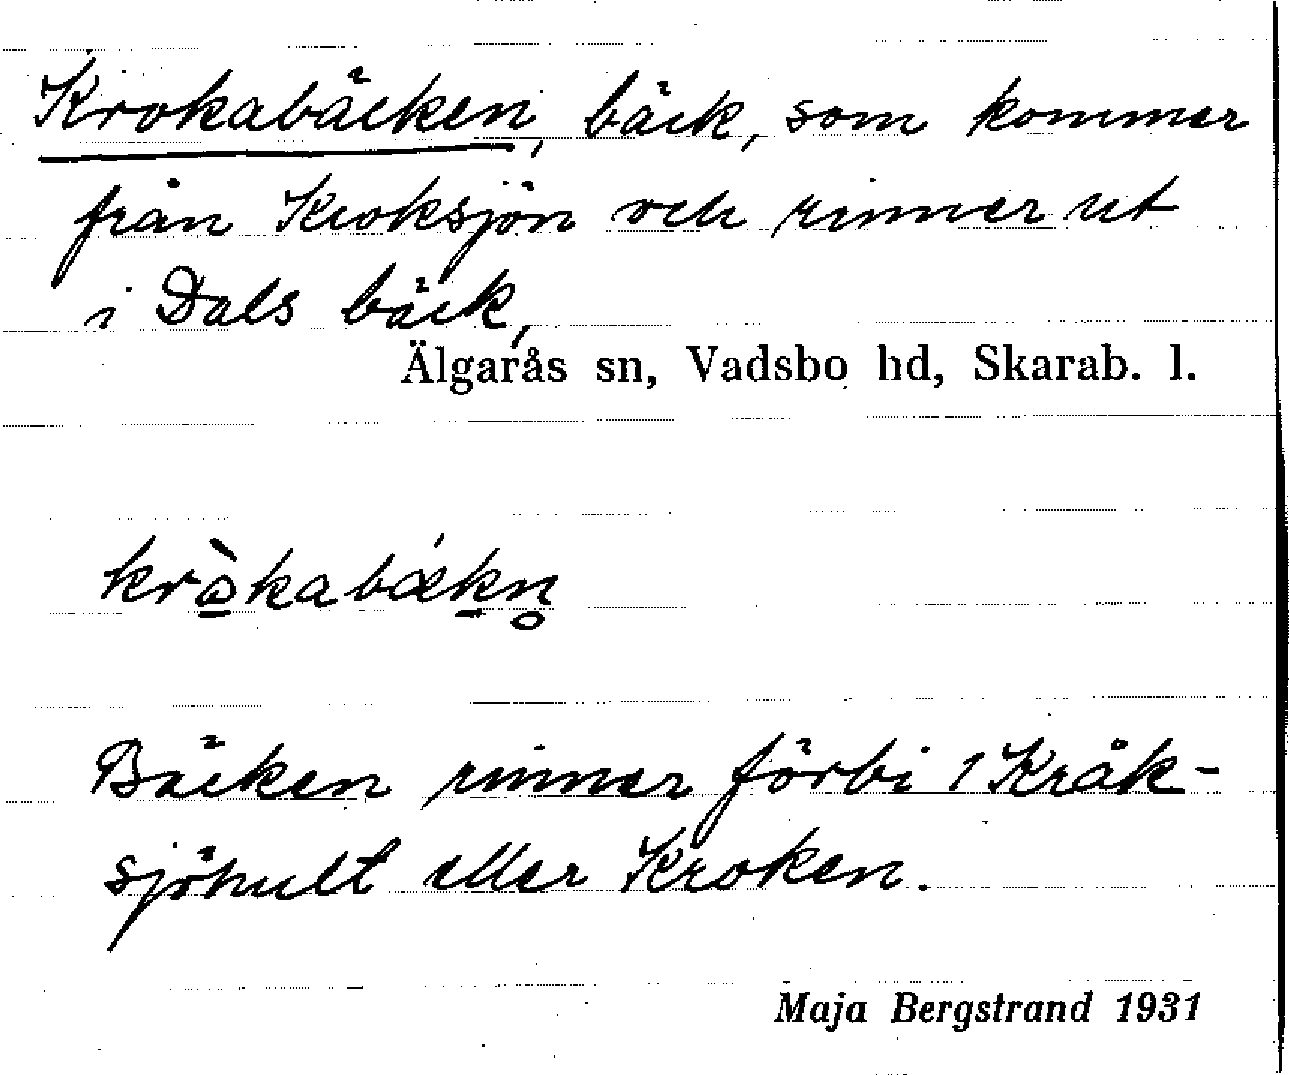 Krokabäcken, bäck, som kommer
från Kroksjön och rinner ut
i Dals bäck,
Älgarås sn, Vadsbo hd, Skarab. l.
krò̱kabǽḵn̥
Bäcken rinner förbi 1 Kråk-
sjöhult eller Kroken.
Maja Bergstrand 1931